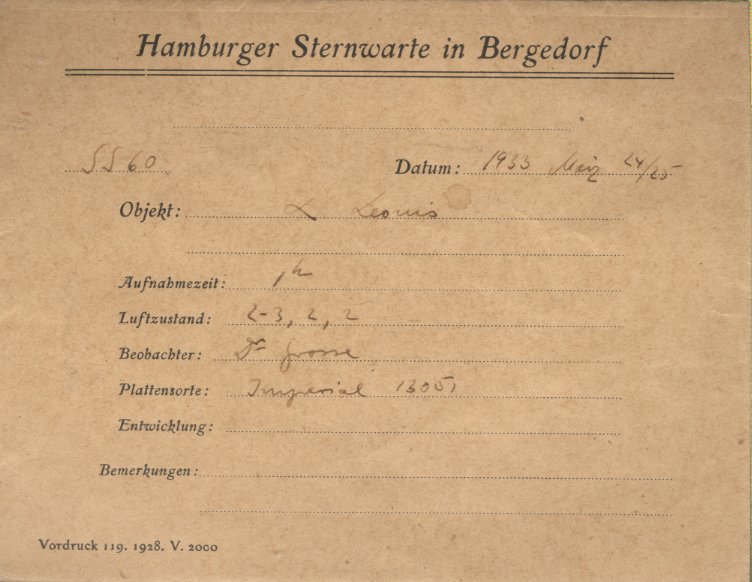 Hamburger Sternwarte in Bergedorf
SS 60 Datum: 1933 März 24/25
Objekt: L Leonis
Aufnahmezeit: 1h
Luftzustand: 2-3, 2, 2
Beobachter: Dr Grosse
Plattensorte: Imperial 1305
Entwicklung:
Bemerkungen:
Vordruck 119. 1928. V. 2000